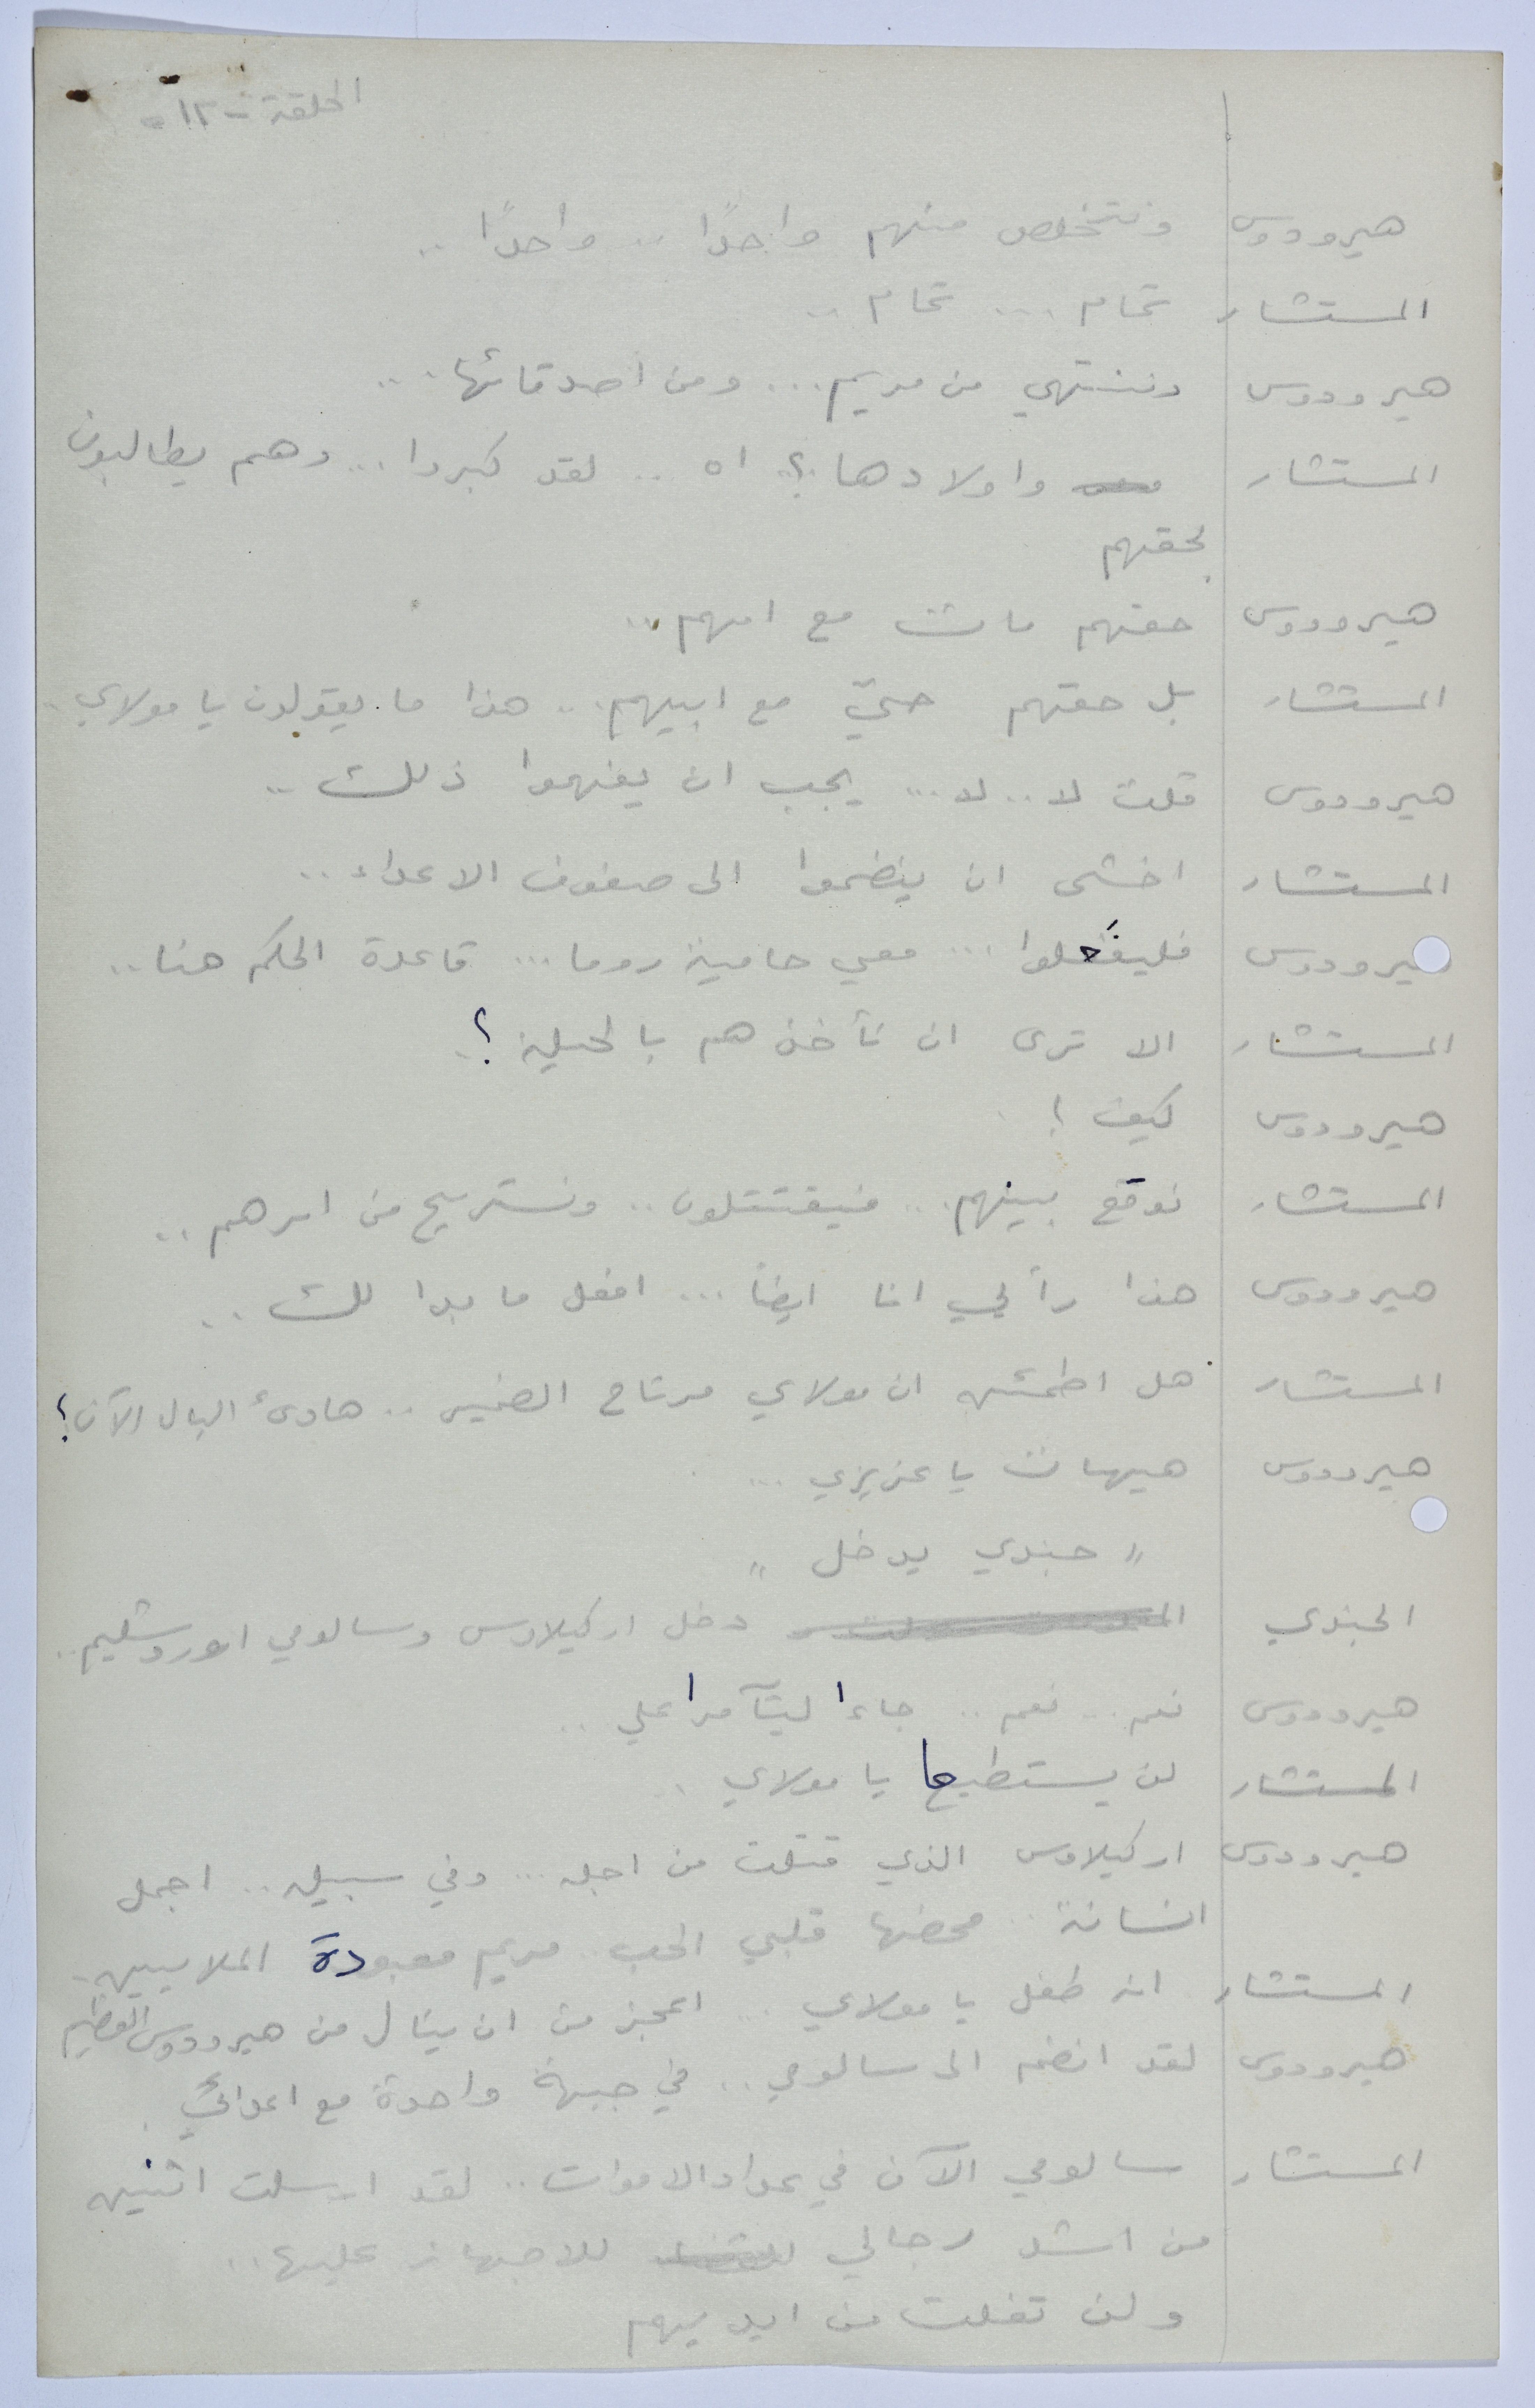 الحلقة - ١٢ -
هيرودوس ونتخلص منهم واحدًا .. واحدًا ..
المستشار تمام ... تمام ..
هيرودوس وننتهي من مريم ... ومن أصدقائها ...
المستشار واولادها ؟ .. اه .. لقد كبروا ... وهم يطالبون
بحقهم
هيرودوس حقهم مات مع امهم ..
المستشار بل حقهم حيّ مع ابيهم .. هذا ما يقولون يا مولاي ..
هيرودوس قلت لا .. لا ... يجب ان يفهموا ذلك ..
المستشار اخشى ان ينضموا الى صفوف الاعداء ..
هيرودوس فليفعلوا ... معي حامية روما ... قاعدة الحكم هنا ..
المستشار الا ترى ان نأخذهم بالحيلة ؟
هيرودوس كيف ؟
المستشار نوقع بينهم .. فيقتتلون .. ونستريح من امرهم ..
هيرودوس هذا رأيي انا ايضاً ... افعل ما بدا لك ..
المستشار هل اطمئن ان مولاي مرتاح الضمير .. هادئ البال الآن ؟
هيرودوس هيهات يا عزيزي ...
" جندي يدخل "
الجندي دخل اركيلاوس وسالومي اورشليم ..
هيرودوس نعم .. نعم .. جاءا ليتآمرا علي ..
المستشار لن يستطيعا يا مولاي .
هيرودوس اركيلاوس الذي قتلت من اجله ... وفي سبيله .. اجمل
انسانة .. محضها قلبي الحب .. مريم معبودة الملايين .
المستشار انه طفل يا مولاي ... اعجز من ان ينال من هيرودوس العظيم
هيرودوس لقد انضم الى سالومي .. في جبهة واحدة مع اعدائي .
المستشار سالومي الآن في عداد الاموات .. لقد ارسلت اثنين
من اشد رجالي للاجهاز عليها ..
ولن تفلت من ايديهم